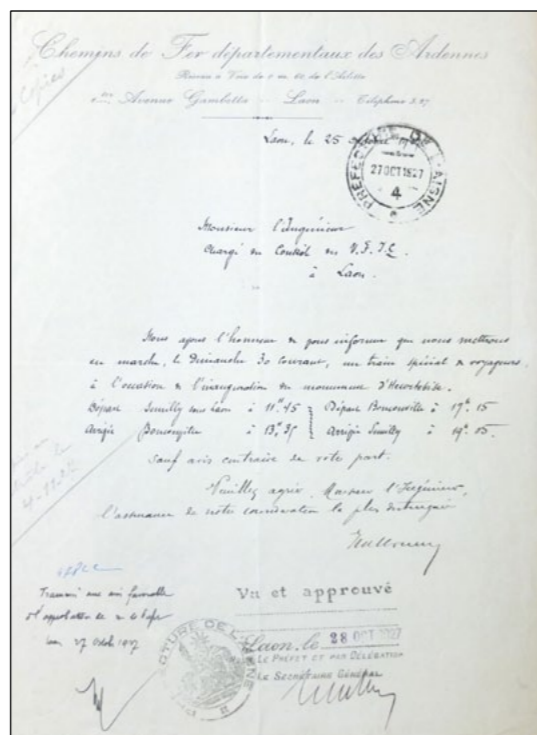 Chemins de Fer départementaux des Ardennes
Réseau à Voie de
Avenue Gambetta -- Laon -- Téléphone 3.27
Copies
Laon, le 25 octobre
PREFECTURE DE L'AISNE
27 OCT 1927
4
Monsieur l'Ingénieur
Chargé du Contrôl des V.F.I.L.
à Laon.
Nous avons l'honneur de vous informer que nous mettrons
en marche, le Dimanche 30 courant, un train spécial de voyageurs,
à l'occation de l'inauguration du monument d'Heurtebise.
Départ Semilly sous Laon à 11h45 Départ Bouconville à 17h15
Arrivée Bouconville à 13h35 Arrivée Semilly à 19h05.
sauf avis contraire de votre part.
Veuillez agréer, Monsieur l'Ingénieur,
l'assurance de notre considération la plus distinguée
Transmis avec avis favorable
Laon 27 Octob 1927
Vu et approuvé
Laon, le 28 OCT 1927
LE PRÉFET ET PAR DÉLÉGATION
LE SECRÉTAIRE GÉNÉRAL
PRÉFECTURE DE L'AISNE